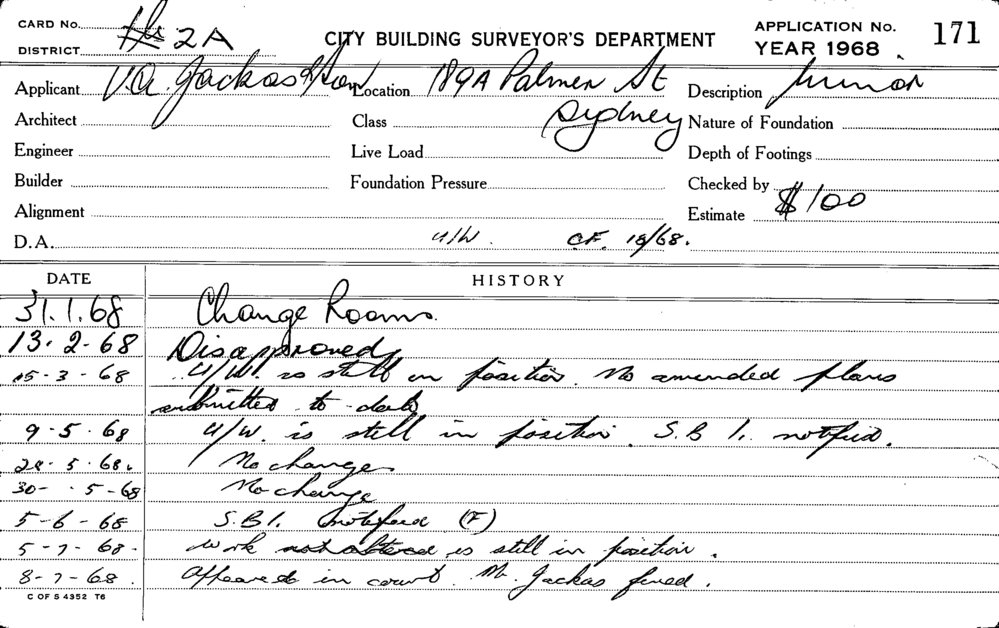 CARD No. 2A
DISTRICT
CITY BUILDING SURVEYOR'S DEPARTMENT
APPLICATION No. 171
YEAR 1968
Applicant V.A. Jackas & Son Location 189A Palmer St Description Minor
Architect Class Sydney Nature of Foundation
Engineer Live Load Depth of Footings
Builder Foundation Pressure Checked by
Alignment Estimate $100
D.A. U/W. CF. 18/68.
DATE HISTORY
31.1.68 Change Rooms.
13.2.68 Disapproved
15-3-68 U/W. is still in position. No amended plans
submitted to date
9.5.68 U/W. is still in position. S.B I. notified.
28.5.68. No change
30-.5-68 No change
5-6-68 S.B I. notified (F)
5-7-68. work not altered is still in position.
8-7-68. Appeared in court. Mr. Jackas fined.
C OF S 4352 T6